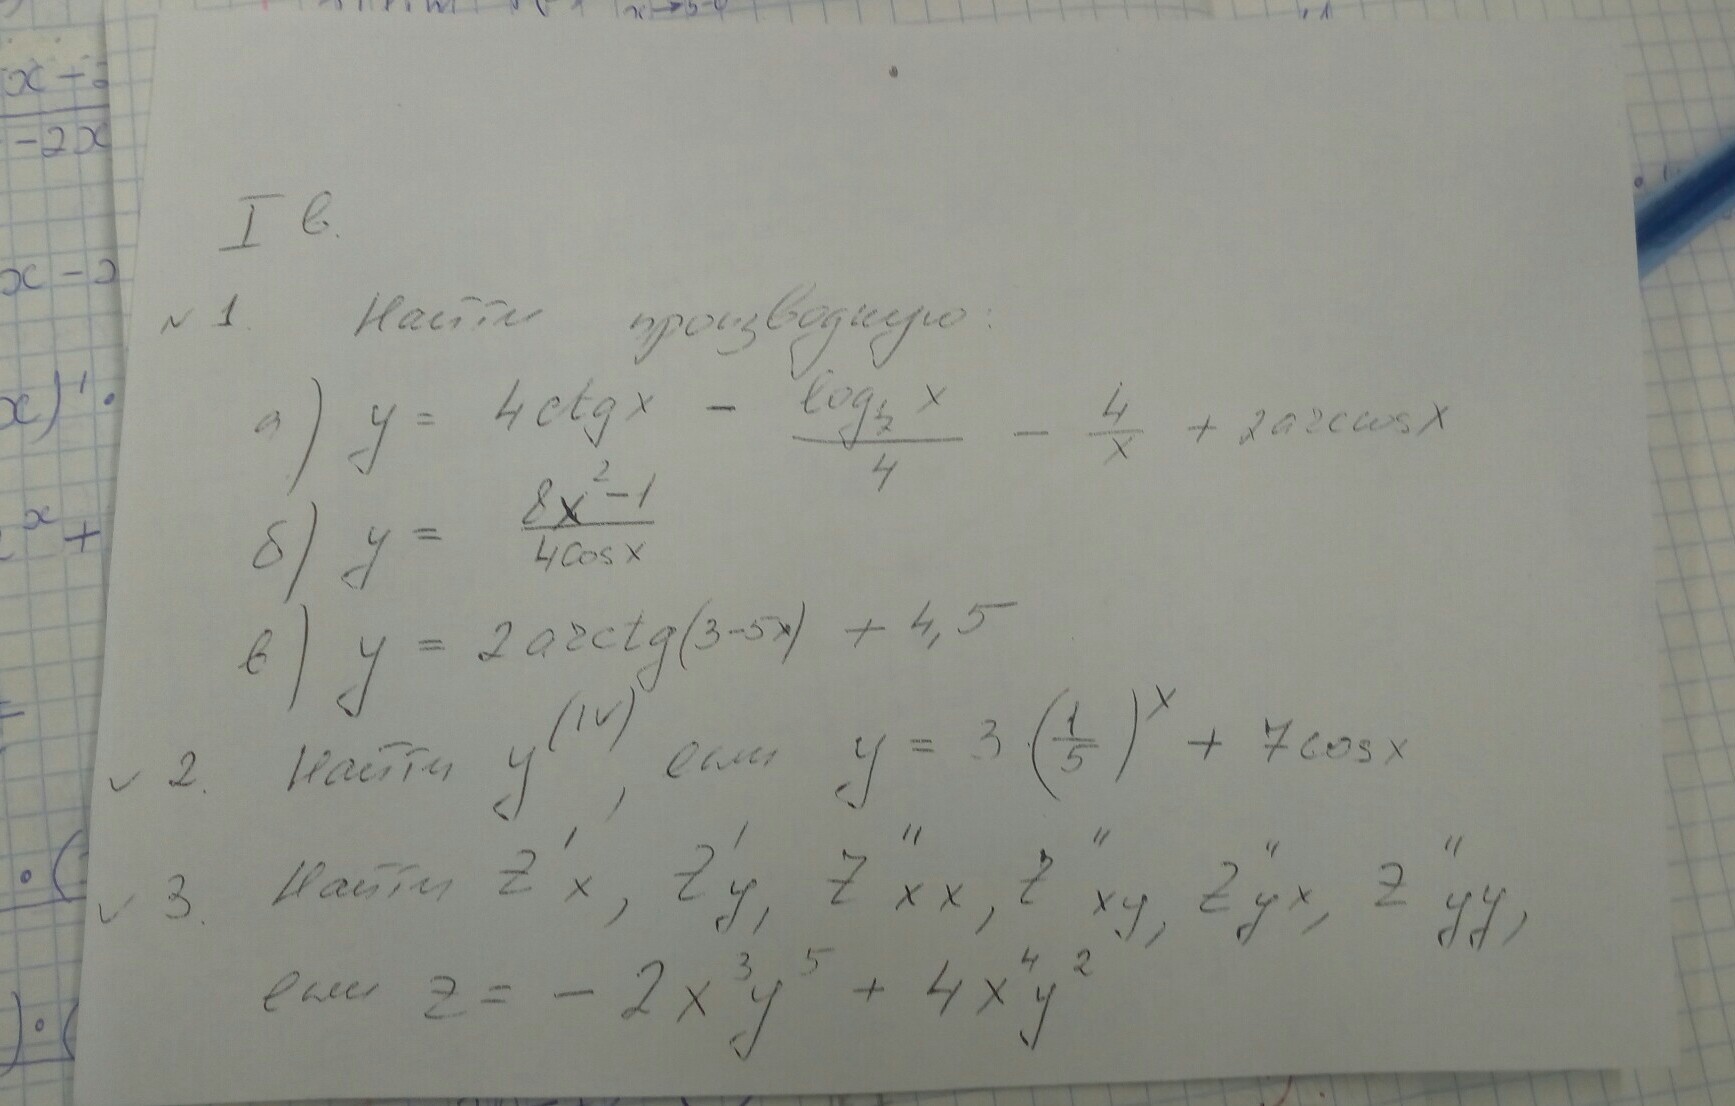 I в.
№ 1. Найти производную:
а) y = 4ctgx - log₇x/4 - 4/x + 2arccosx
б) y = 8x²-1/4cosx
в) y = 2arctg(3-5x) + 4,5
√ 2. Найти y⁽ᴵⱽ⁾, если y = 3·(1/5)ˣ + 7cosx
√ 3. Найти z'x, z'y, z''xx, z''xy, z''yx, z''yy,
если z = -2x³y⁵ + 4x⁴y²
-2x
x)'·